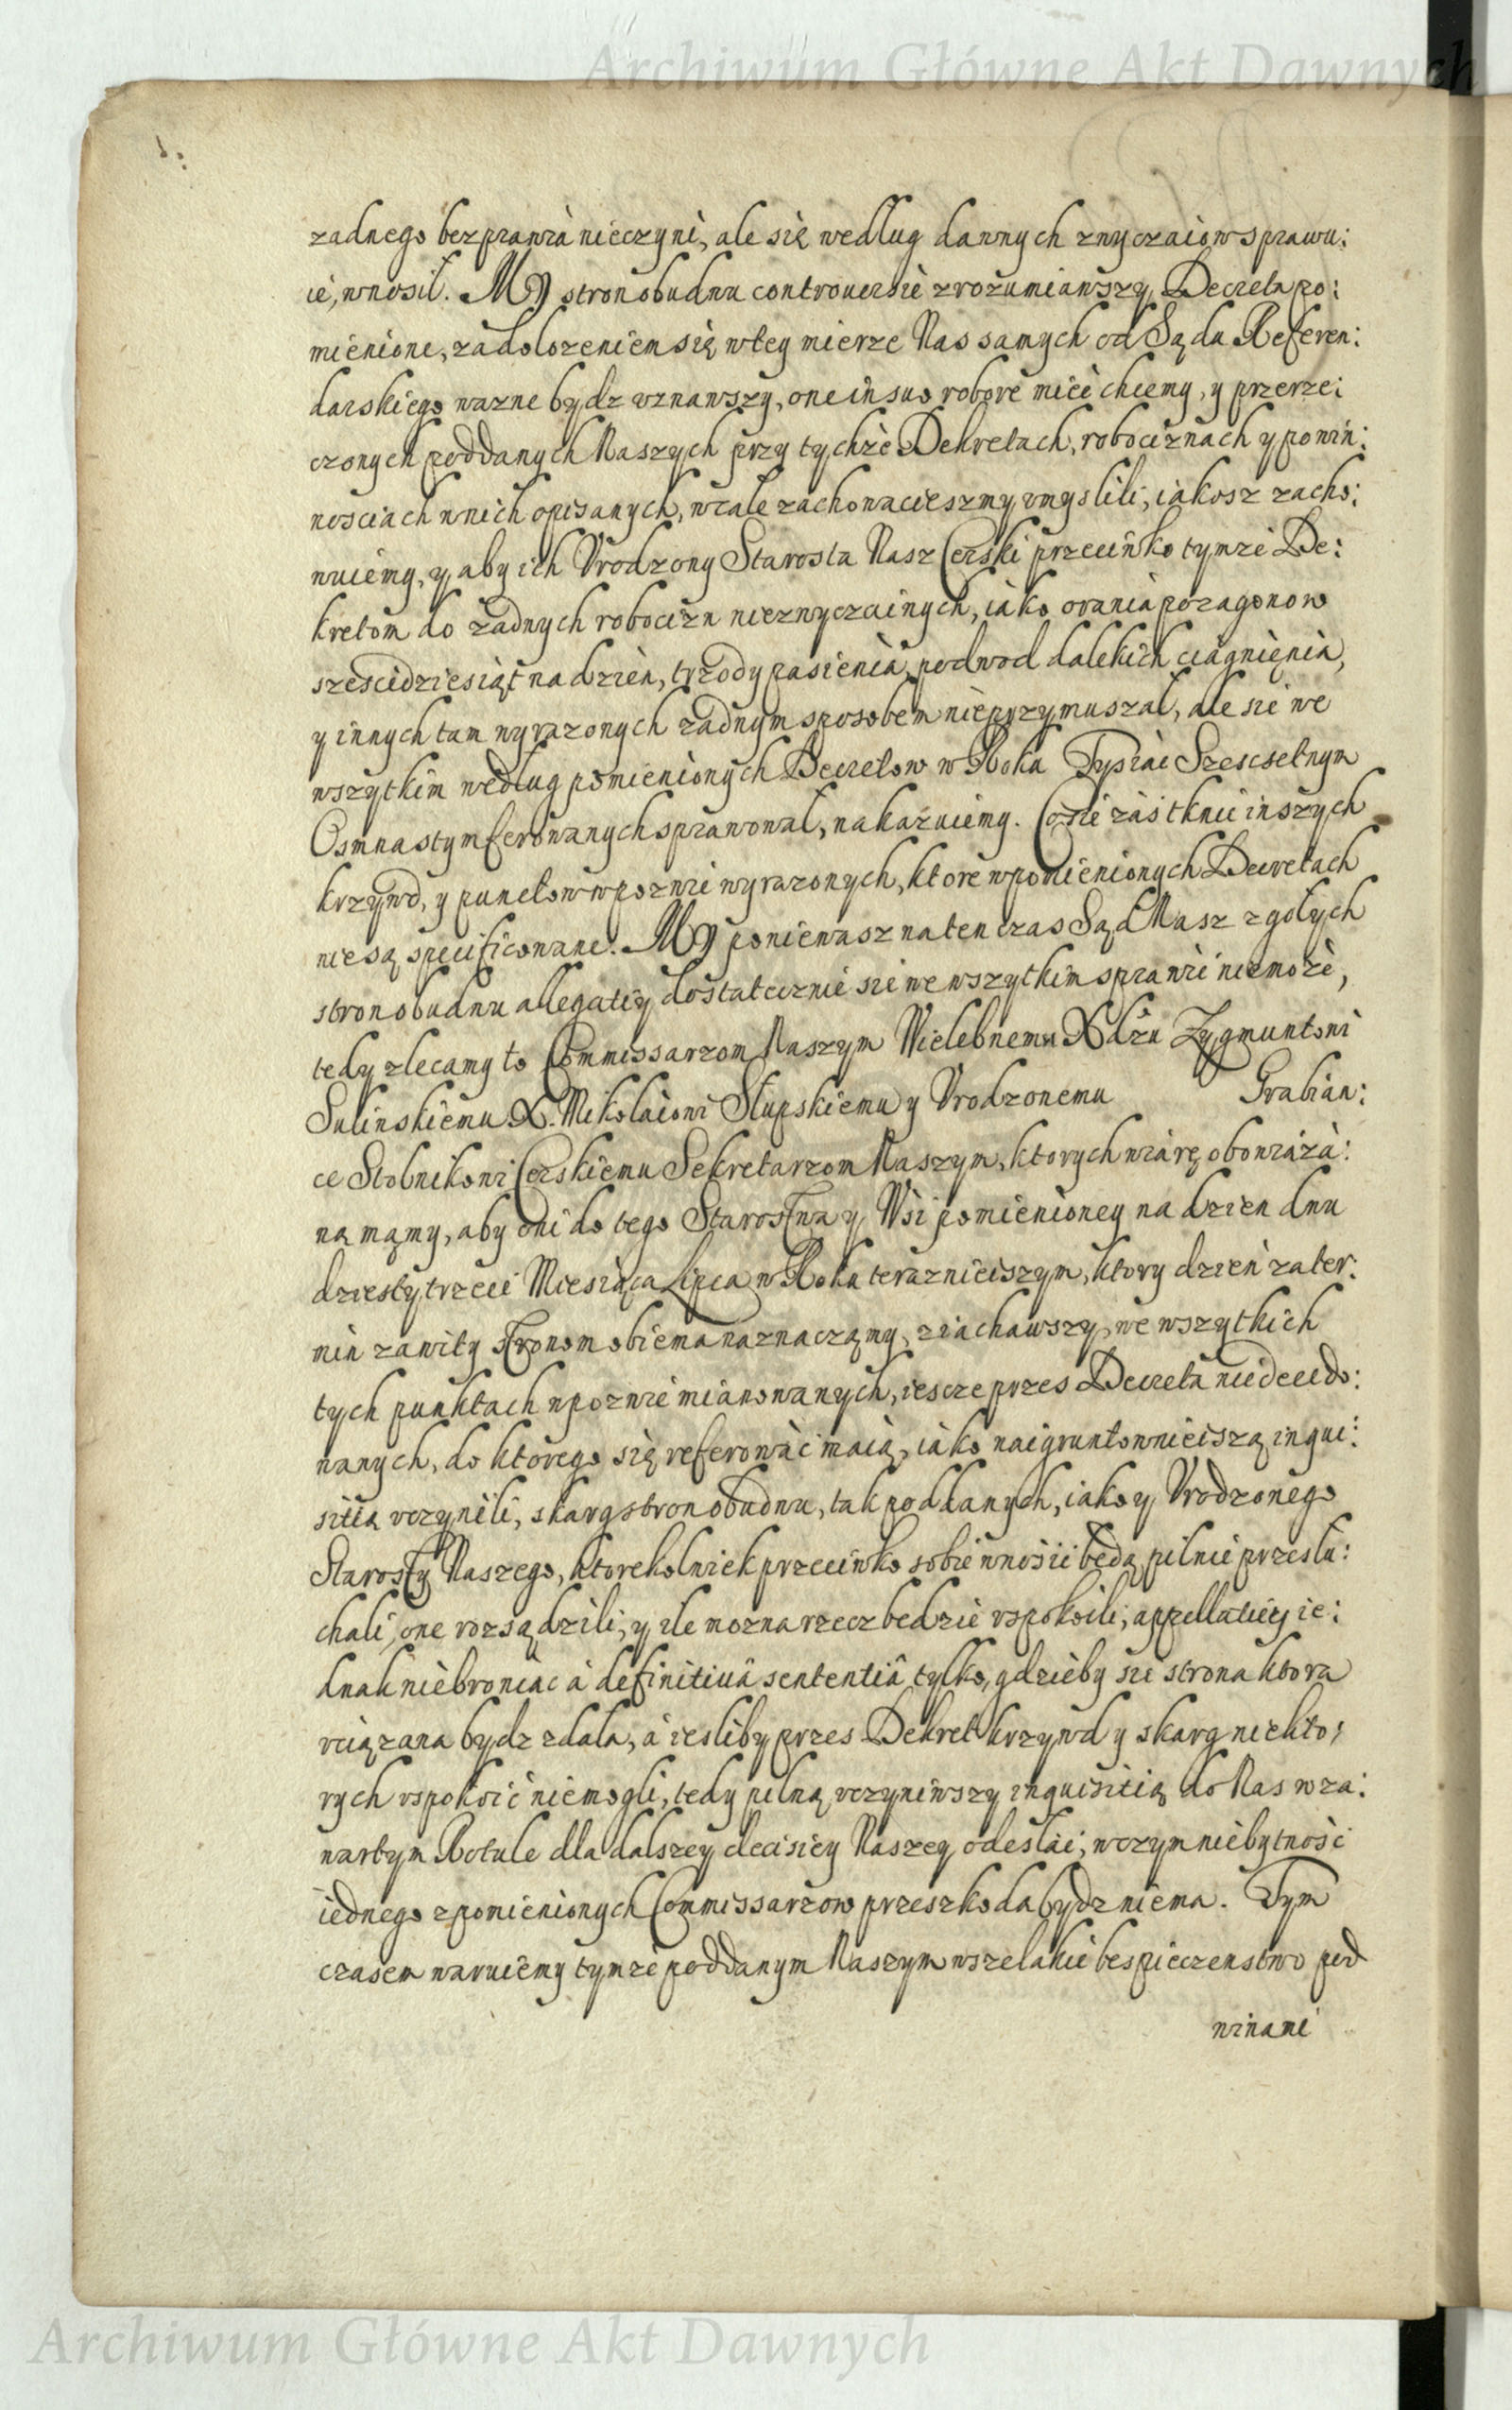 Archiwum Główne Akt Dawnych
zadnego bezprawia nieczyni, ale się według dawnych zwyczaiow sprawu:
ie, wnosił. My stron obudwu controuersie zrozumiawszy, Decreta po:
mienione, za dołozeniem się w tey mierze Nas samych od Sądu Referen:
darskiego wazne bydz uznawszy, one in suo robore mieć chcemy, y przerze:
czonych poddanych Naszych przy tychże Dekretach, robociznach y powin:
nosciach w nich opisanych, wcale zachować eszmy umyslili, iakosz zacho:
wuiemy, y aby ich Vrodzony Starosta Nasz Czerski przeciwko tymże De:
kretom do żadnych robocizn niezwyczainych, iako orania po zagonow
szescidziesiąt na dzień, trzody pasienia, podwod dalekich ciągnienia,
y innych tam wyrazonych żadnym sposobem nieprzymuszał, ale sie we
wszytkim według pomienionych Decretow w Roku Tysiąc Szescsetnym
Osmnastym ferowanych sprawował, nakazuiemy. Co sie zaś tknie inszych
krzywd, y punctow w pozwie wyrazonych, ktore w pomienionych Decretach
nie są specificowane. My poniewasz na ten czas Sąd Nasz z gołych
stron obudwu allegatiy dostatecznie sie we wszytkim sprawić niemoże,
tedy zlecamy to Commissarzom Naszym Wielebnemu Xdzu Zygmuntowi
Sulinskiemu X. Mikołaiowi Słupskiemu y Vrodzonemu Grabian:
ce Stolnikowi Czerskiemu Sekretarzom Naszym, ktorych wiarę obowiąza:
ną mamy, aby oni do tego Starostwa y Wsi pomienioney na dzien dwu
dziesty trzeci Miesiąca Lipca w Roku terazniejszym, ktory dzień za ter:
min zawity stronom obiema naznaczamy, ziachawszy, we wszytkich
tych punktach w pozwie mianowanych, iescze przes Decreta niedecido:
wanych, do ktorego się referować maią, iako naigruntownieiszą inqui:
sitią uczynili, skarg stron obudwu, tak poddanych, iako y Vrodzonego
Starosty Naszego, ktorekolwiek przeciwko sobie wnosić będą pilnie przesłu:
chali, one rozsądzili, y ile mozna rzecz bedzie uspokoili, appellatiey ie:
dnak niebroniąc à definitiuâ sententiâ tylko, gdzieby sie strona ktora
uciązana bydz zdała, à iesliby przes Dekret krzywd y skarg niekto:
rych uspokoić niemogli, tedy pilną uczyniwszy inquisitią do Nas w za:
wartym Rotule dla dalszey decisiey Naszey odesłać, w czym niebytność
iednego z pomienionych Commissarzow przeszkoda bydz niema. Tym
czasem waruiemy tymże poddanym Naszym wszelakie bespieczenstwo pod
winami
Archiwum Główne Akt Dawnych